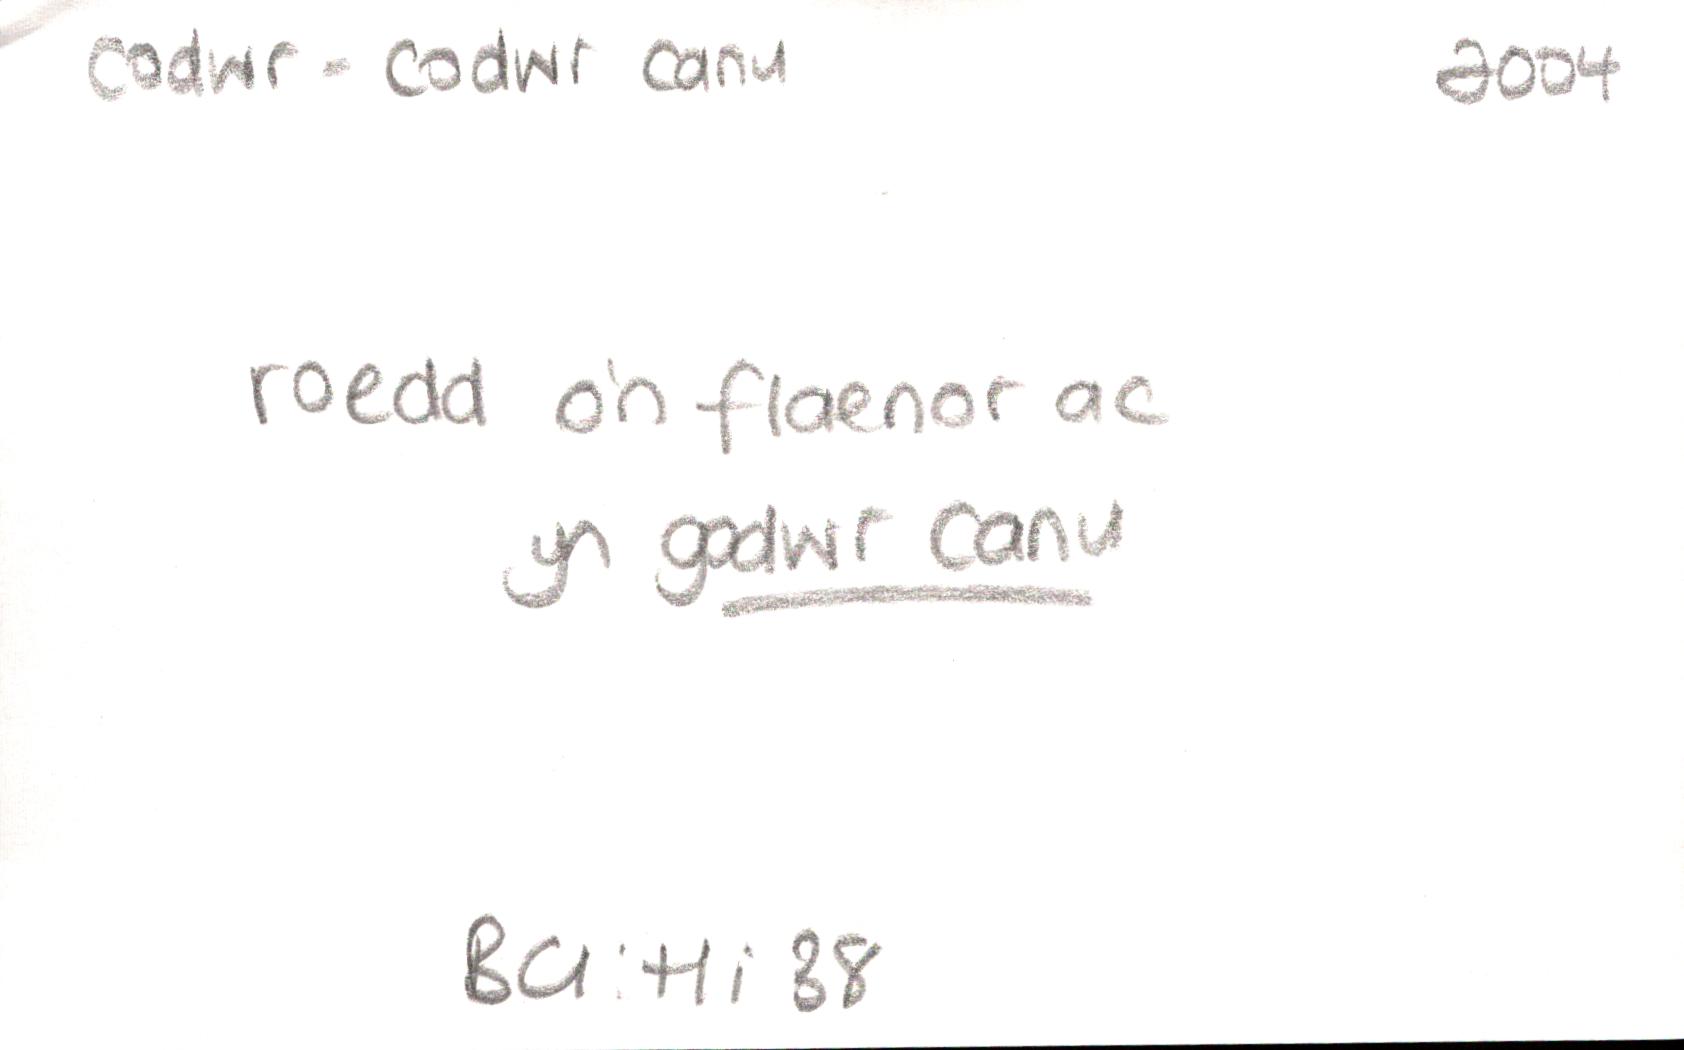 codwr - codwr canu 2004
roedd o'n flaenor ac
yn godwr canu
BCI: Hi 38